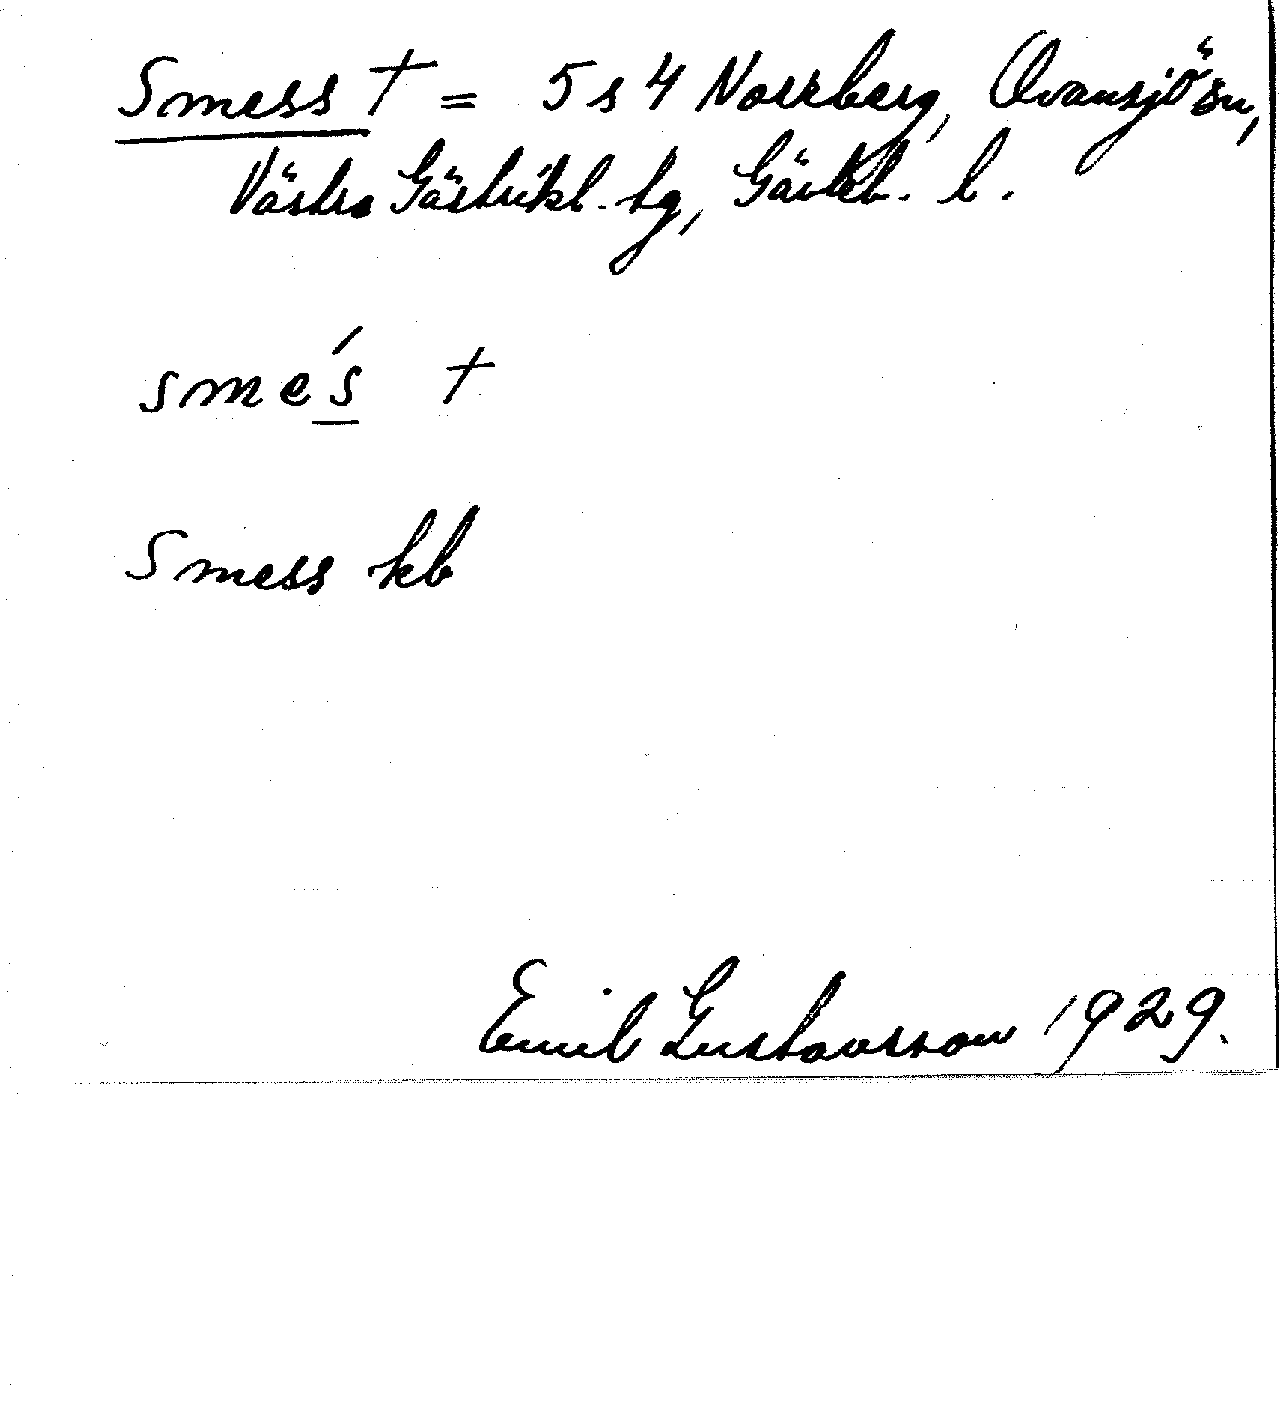 Smess † = 5 s 4 Norrberg, Ovansjö sn,
Västra Gästrikl. tg, Gävleb. l.
smés †
Smess kb
Emil Gustavsson 1929.